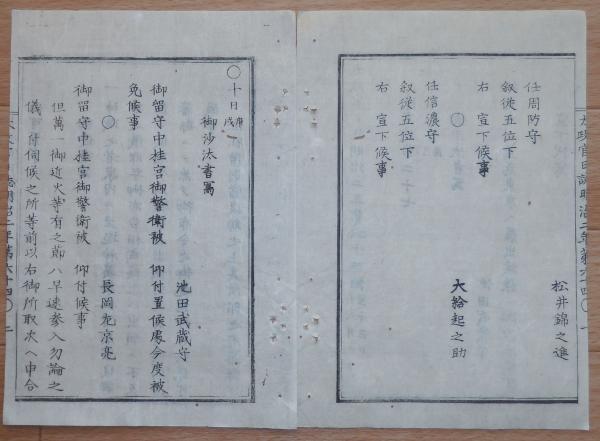 松井錦之進
任周防守
叙従五位下
右 宣下候事
〇
大給起之助
任信濃守
叙従五位下
右 宣下候事
太政官日誌明治二年第六十四〇 一
〇十日庚戌
御沙汰書寫
池田武蔵守
御留守中桂宮御警衛被 仰付置候處今度被
免候事
〇
長岡左京亮
御留守中桂宮御警衛被 仰付候事
但萬一御近火等有之節ハ早速参入勿論之
儀ニ付伺候之所等前以右御所取次ヘ申合
明治二年第六十四〇 二